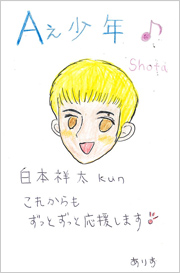 Aえ少年♪
Shota
白本祥太 kun
これからも
ずっとずっと応援します
ありす